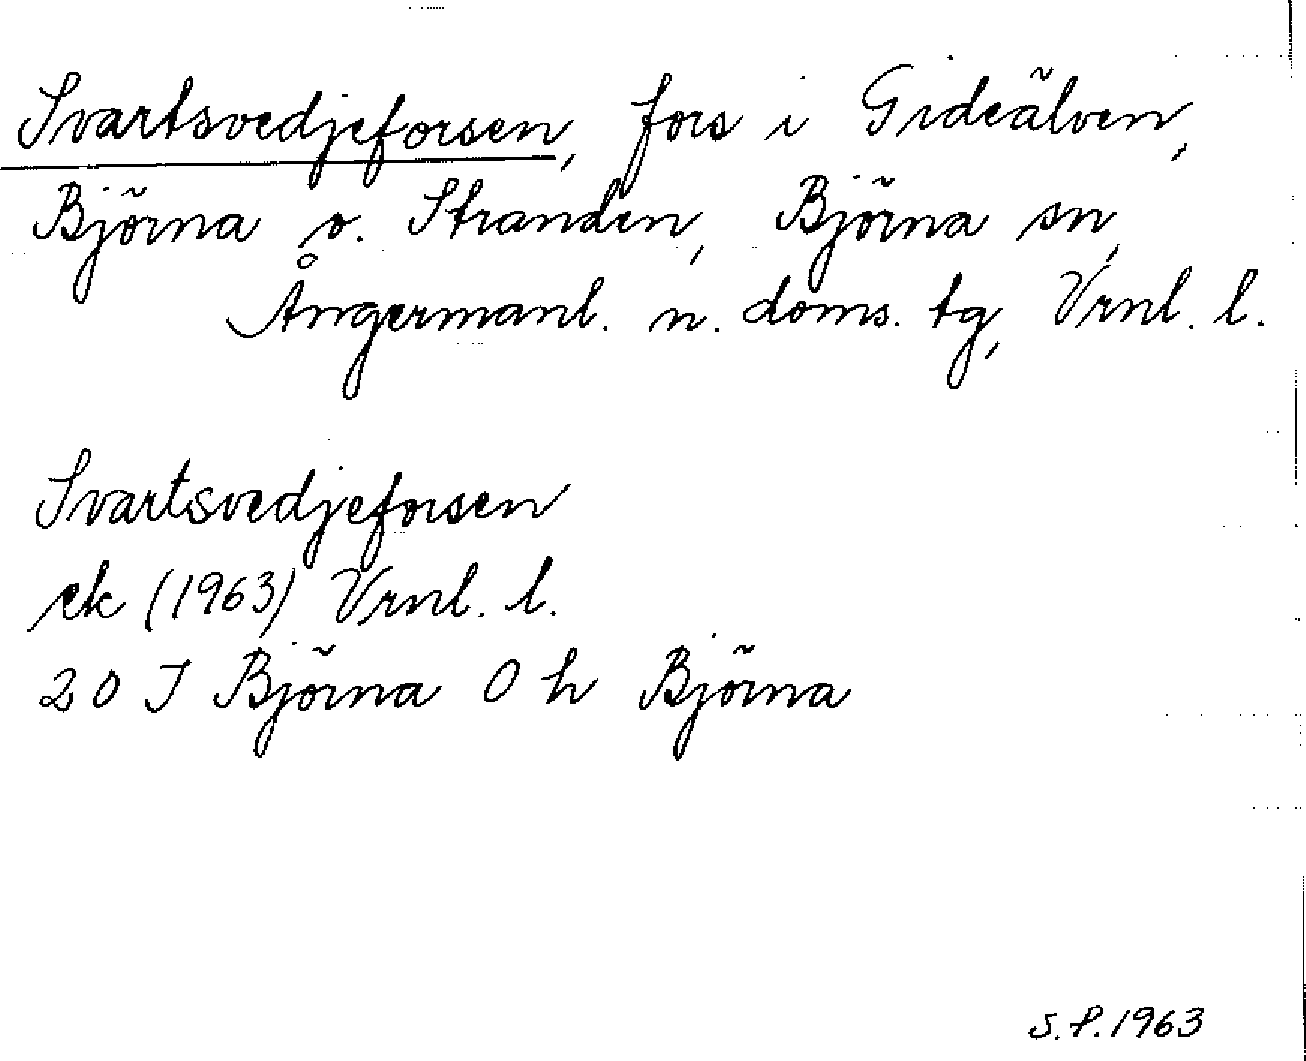 Svartsvedjeforsen, fors i Gideälven,
Björna o. Stranden, Björna sn,
Ångermanl. n. doms. tg, Vrnl. l.
Svartsvedjeforsen
ek (1963) Vrnl. l.
20 J Björna 0 h Björna
S.P. 1963